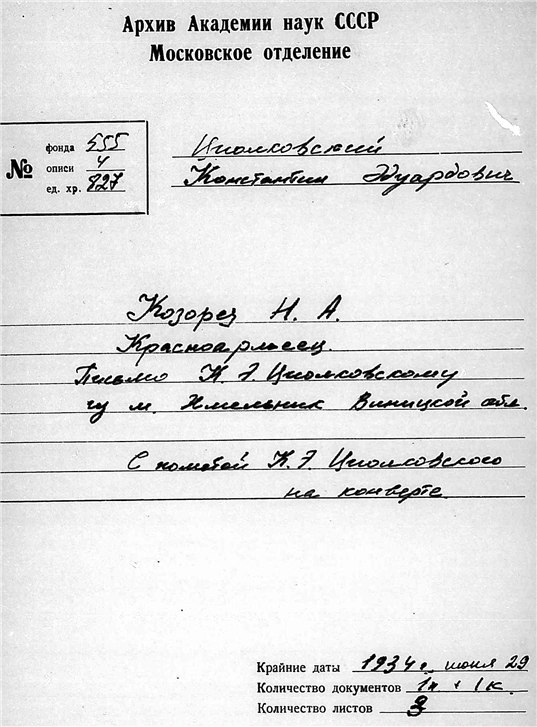 Архив Академии наук СССР
Московское отделение
№
фонда 555
описи 4
ед. хр. 827
Циолковский
Константин Эдуардович
Козорез Н. А.
Красноармеец.
Письмо К. Э. Циолковскому
из м. Хмельник Виницкой обл.
С пометой К. Э. Циолковского
на конверте.
Крайние даты 1934 г. июня 29
Количество документов 1п + 1к.
Количество листов 3